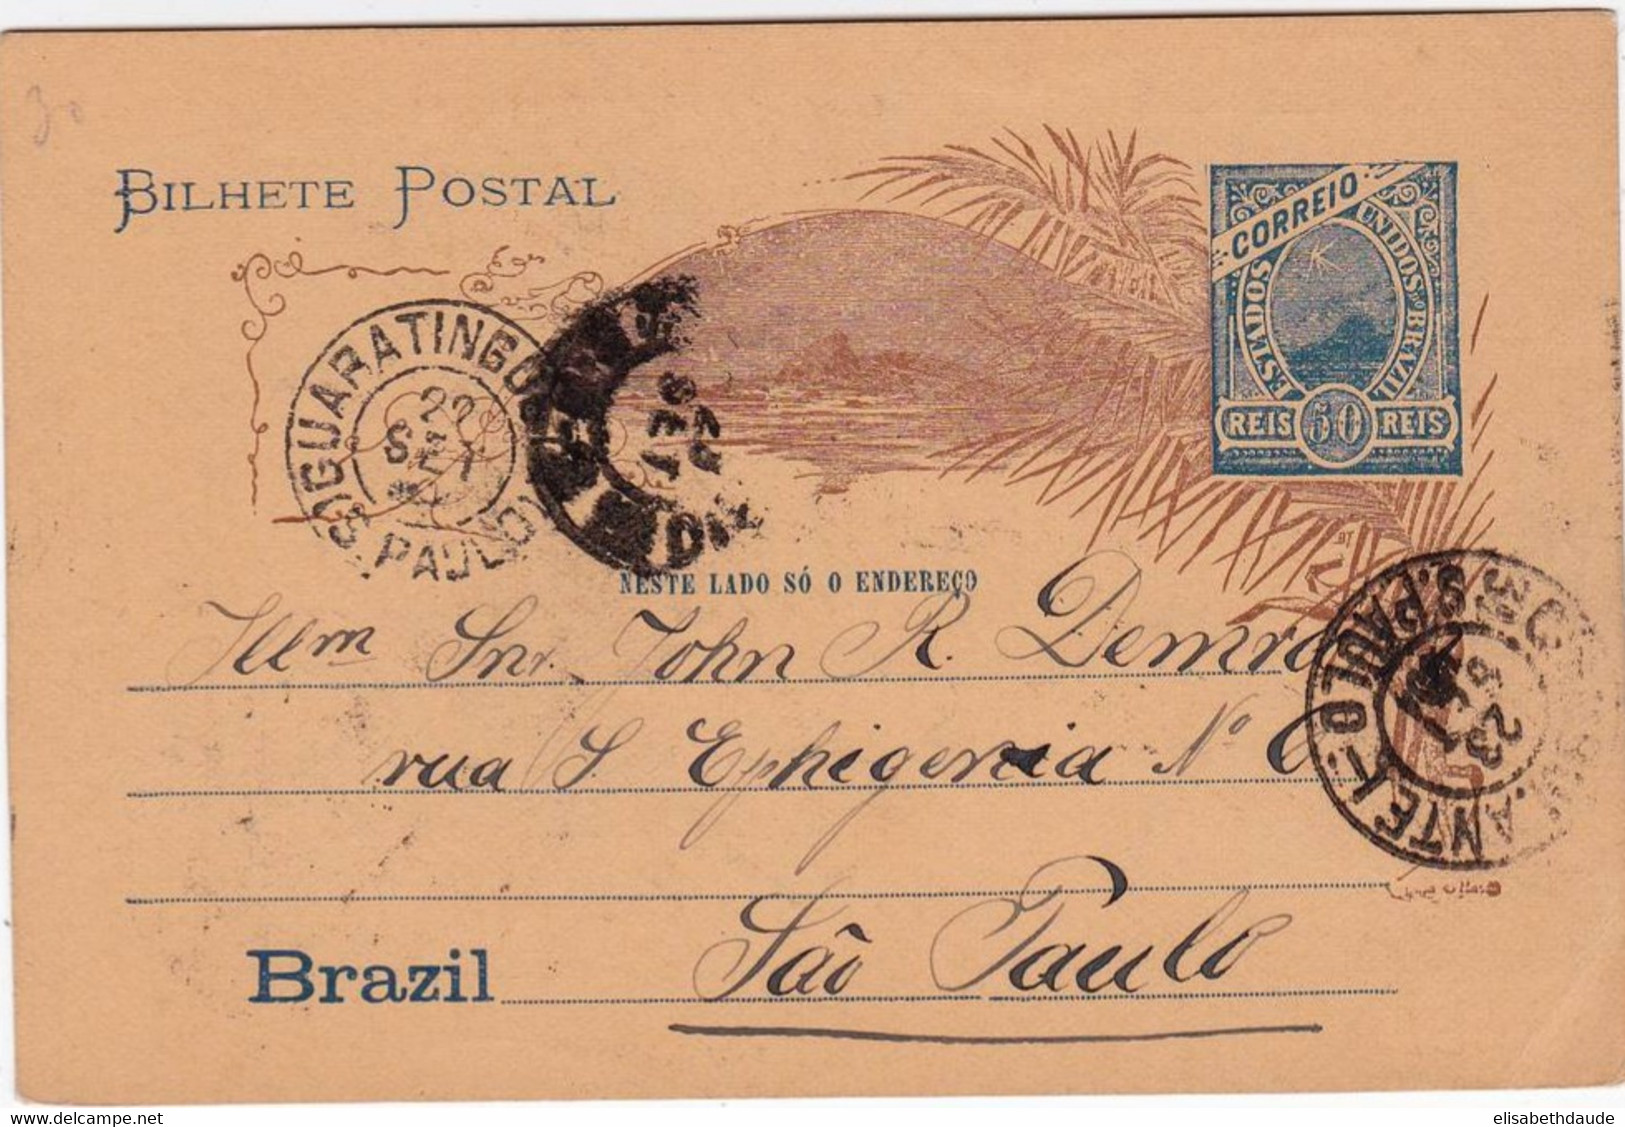 30
BILHETE POSTAL
CORREIO
ESTADOS UNIDOS DO BRAZIL
REIS 50 REIS
GUARATINGU
22
SET
(S. PAULO)
NESTE LADO SÓ O ENDEREÇO
Illm Snr. John R.
rua S Ephigenia Nº 6
S. PAULO
23
São Paulo
Brazil
www.delcampe.net
elisabethdaude